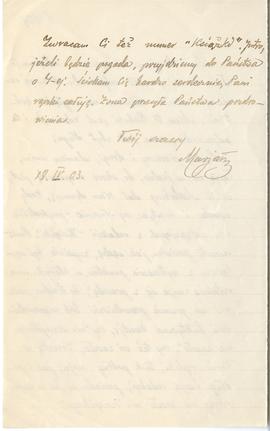 Zwracam Ci też numer "Książki". Jutro,
jeżeli będzie pogoda, przyjdziemy do Państwa
o 4-ej. Ściskam Cię bardzo serdecznie, Pani
rączki całuję. Żona przesyła Państwu pozdro-
wienia.
Twój
Marjan
18. IV. 03.